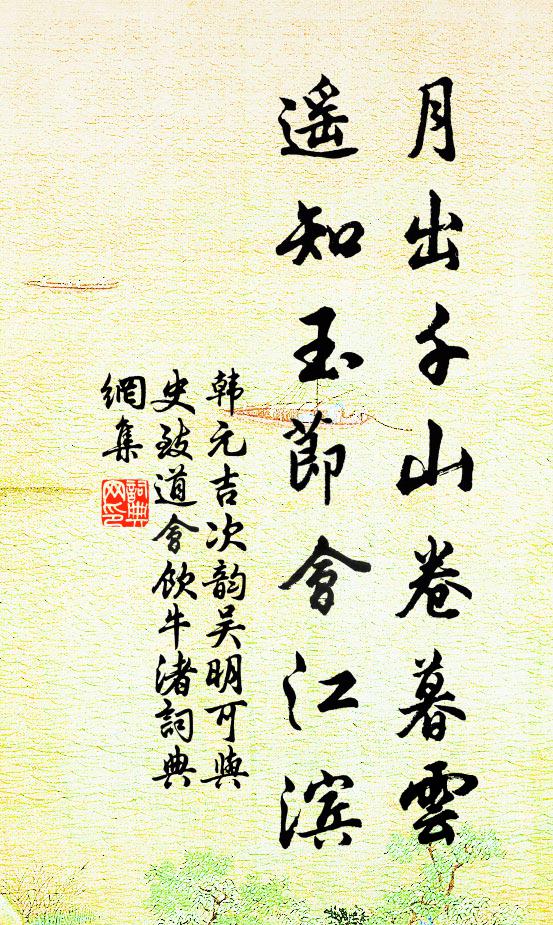 月出千山卷暮雲
遥知玉節會江滨
韩元吉次韵吴明可與
史致道會飲牛渚詞典
網集
詞典
网印